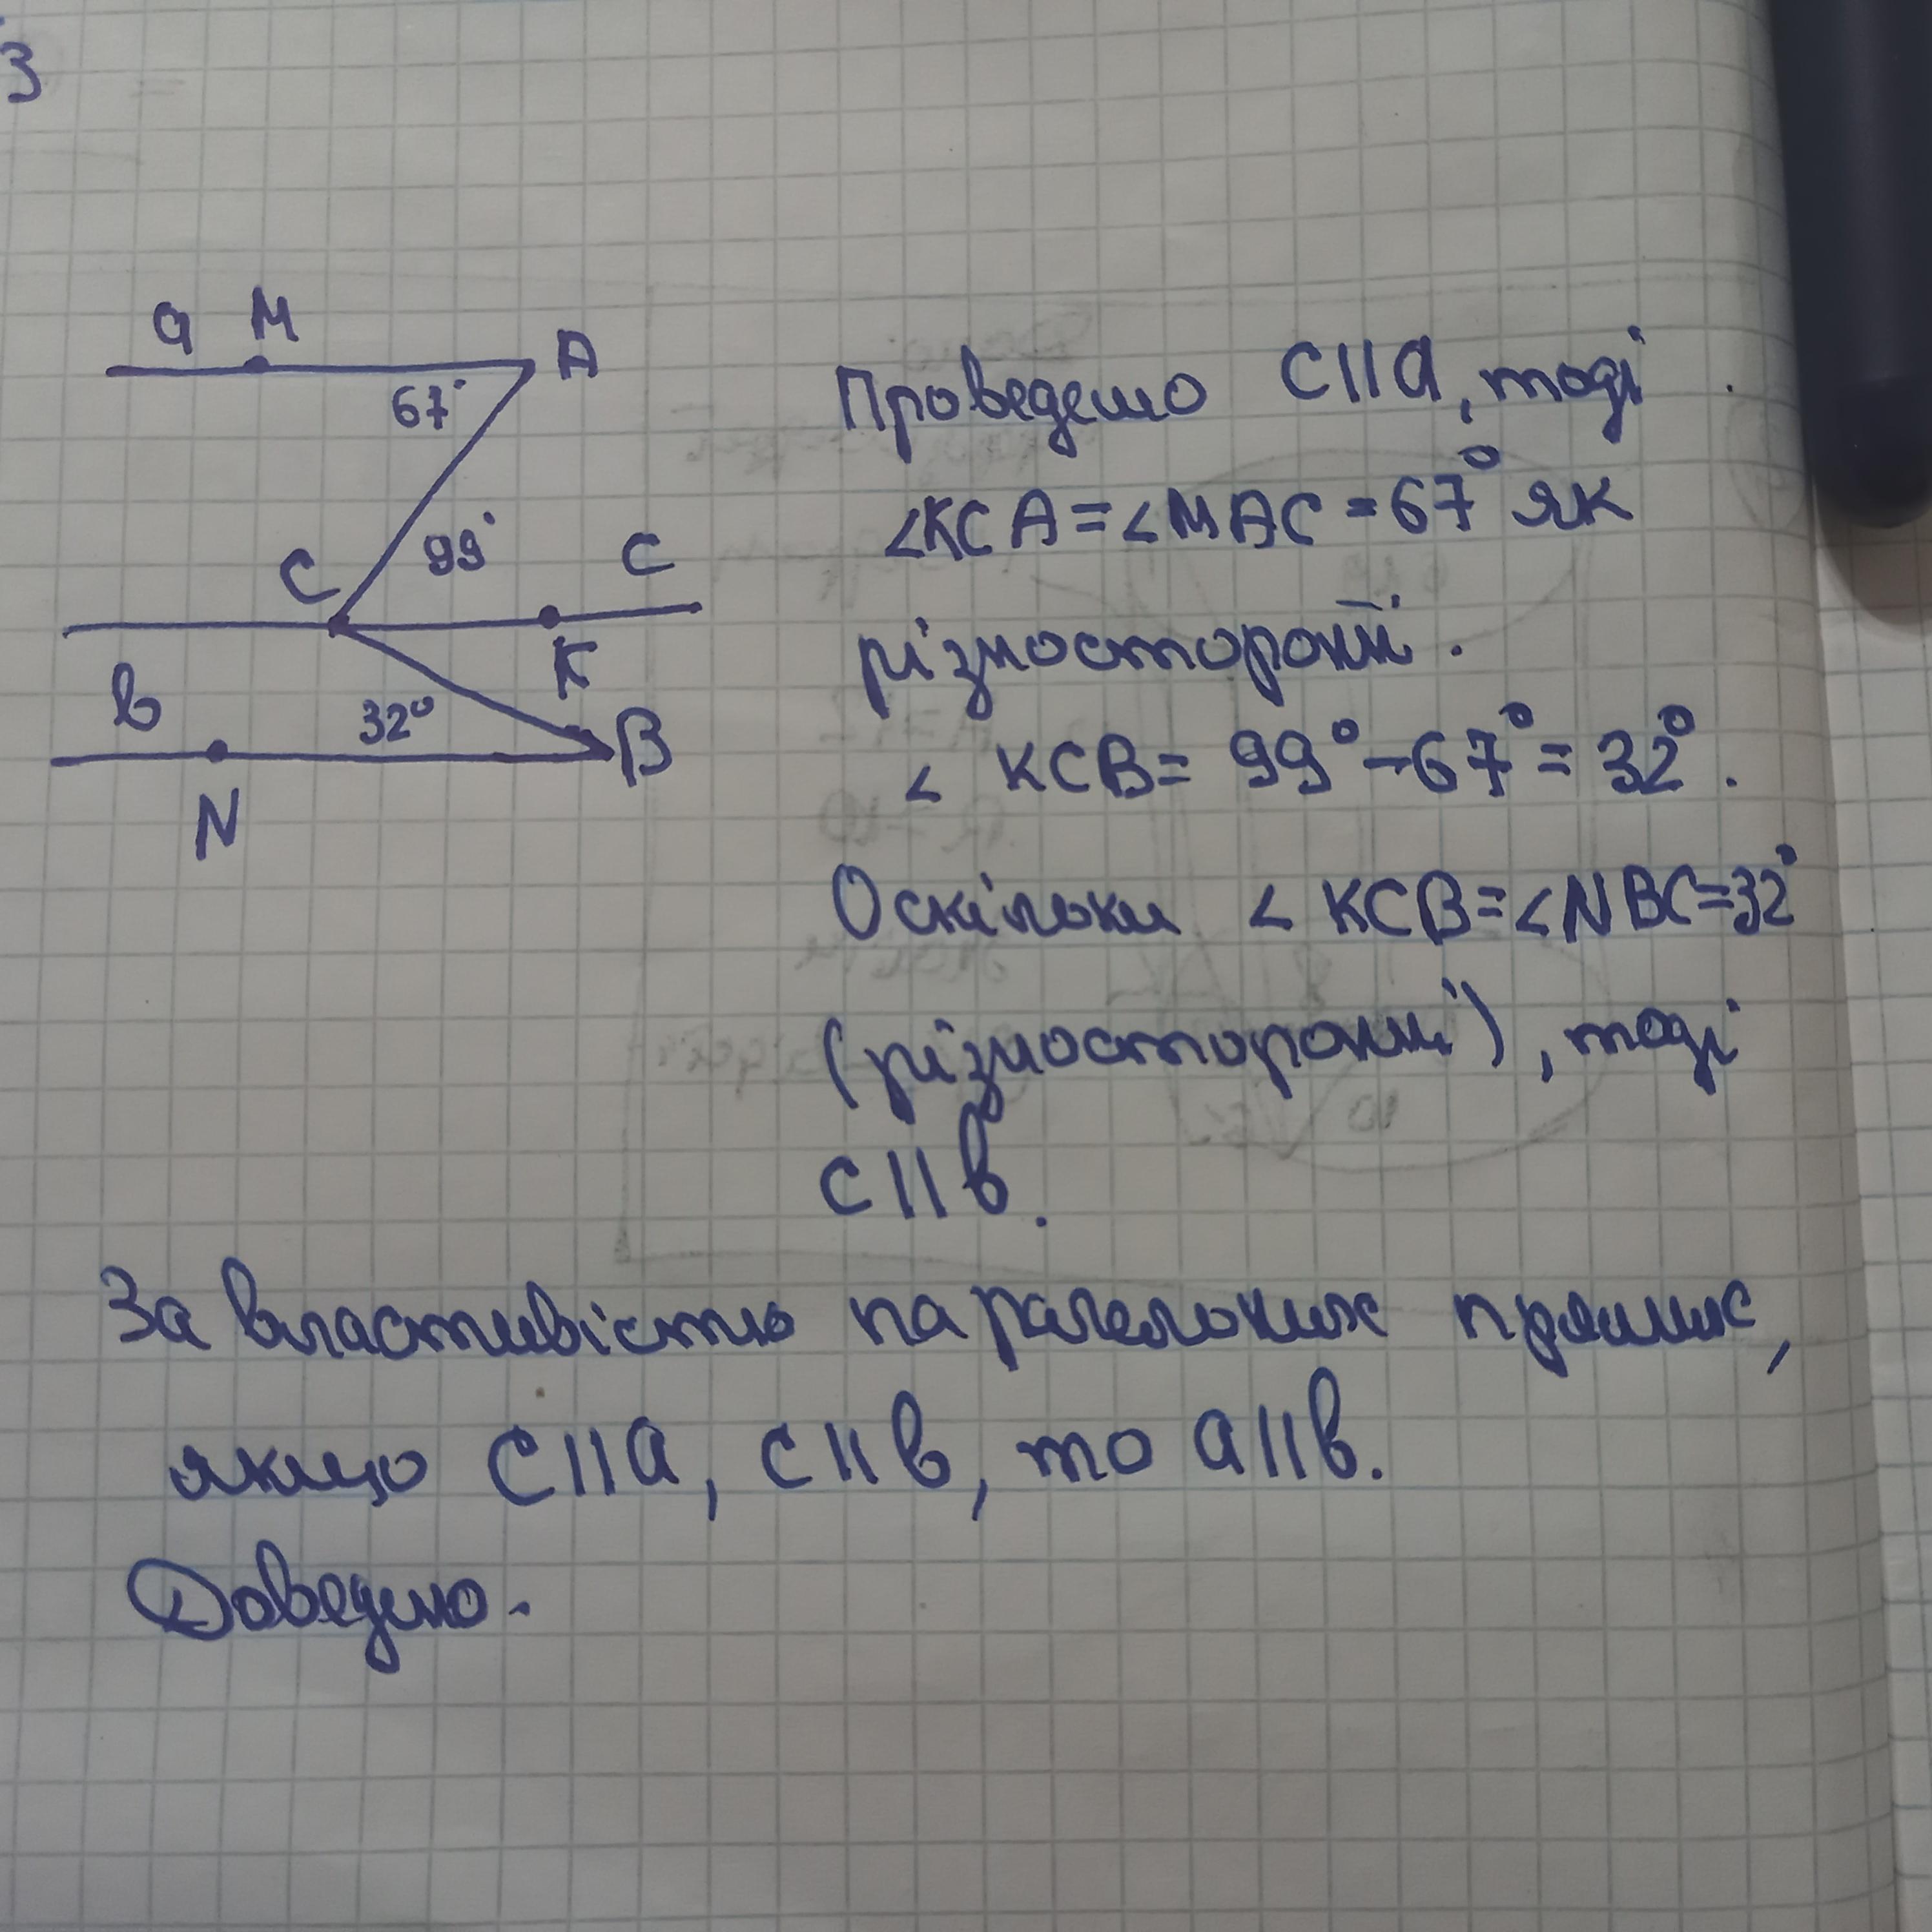 3
a M A
67°
99°
C c
K
b
32°
B
N
Проведемо c||a, тоді
∠KCA=∠MAC=67° як
різносторонні.
∠ KCB= 99°-67°=32°.
Оскільки ∠ KCB=∠NBC=32°
(різносторонні), тоді
c||b.
За властивістю паралельних прямих,
якщо c||a, c||b, то a||b.
Доведено.